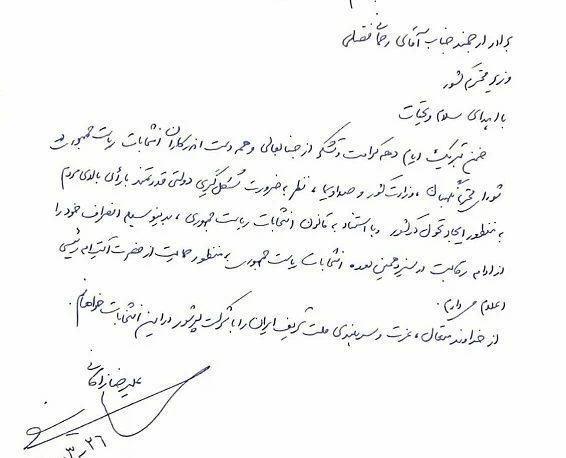 برادر ارجمند جناب آقای رحمانی فضلی
وزیر محترم کشور
با اهدای سلام و تحیات
ضمن تبریک ایام دهه کرامت و تشکر از جنابعالی و همه دست اندرکاران انتخابات ریاست جمهوری در
شورای محترم نگهبان، وزارت کشور و صداوسیما، نظر به ضرورت شکل گیری دولتی قدرتمند با رأی بالای مردم
به منظور ایجاد تحول در کشور و با استناد به قانون انتخابات ریاست جمهوری، بدینوسیله انصراف خود را
از ادامه رقابت در سیزدهمین دوره انتخابات ریاست جمهوری به منظور حمایت از حضرت آیت الله رئیسی
اعلام می دارم.
از خداوند متعال، عزت و سربلندی ملت شریف ایران را با شرکت پرشور در این انتخابات خواهانم.
علیرضا زاکانی
۳-۲۶